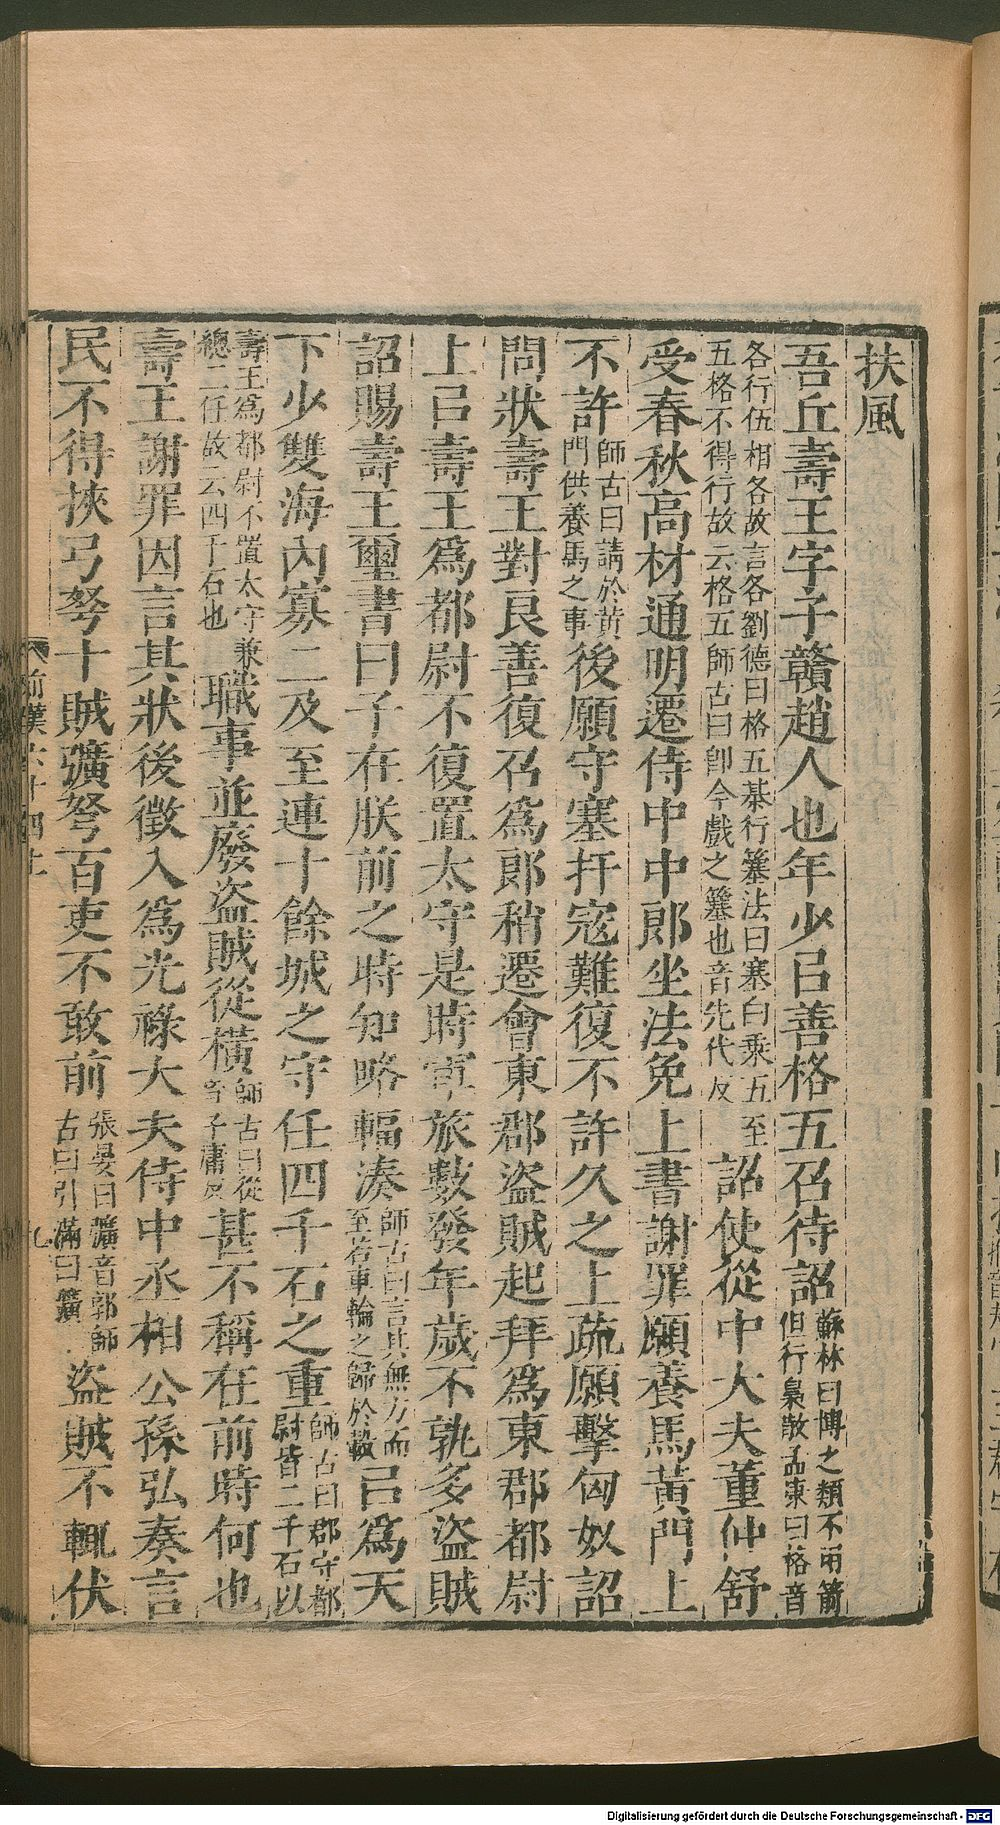 扶風
吾丘壽王字子贛趙人也年少㠯善格五召待詔蘇林曰博之類不用箭但行梟散孟康曰格音
各行伍相各故言各劉德曰格五棊行簺法曰塞白乘五至五格不得行故云格五師古曰卽今戲之簺也音先代反詔使從中大夫董仲舒
受春秋高材通明遷侍中中郎坐法免上書謝罪願養馬黃門上
不許師古曰請於黃門供養馬之事後願守塞扞寇難復不許久之上疏願擊匈奴詔
問狀壽王對良善復召爲郎稍遷會東郡盜賊起拜爲東郡都尉
上㠯壽王爲都尉不復置太守是時軍旅數發年歲不孰多盜賊
詔賜壽王璽書曰子在朕前之時知略輻湊師古曰言其無方而至若車輪之歸於轂㠯爲天
下少雙海內寡二及至連十餘城之守任四千石之重師古曰郡守都尉皆二千石以
壽王爲都尉不置太守兼總二任故云四千石也職事並廢盜賊從橫師古曰從音子庸反甚不稱在前時何也
壽王謝罪因言其狀後徵入爲光祿大夫侍中丞相公孫弘奏言
民不得挾弓弩十賊彍弩百吏不敢前張晏曰彍音郭師古曰引滿曰彍盜賊不輒伏
前漢六十四上
九
Digitalisierung gefördert durch die Deutsche Forschungsgemeinschaft - DFG